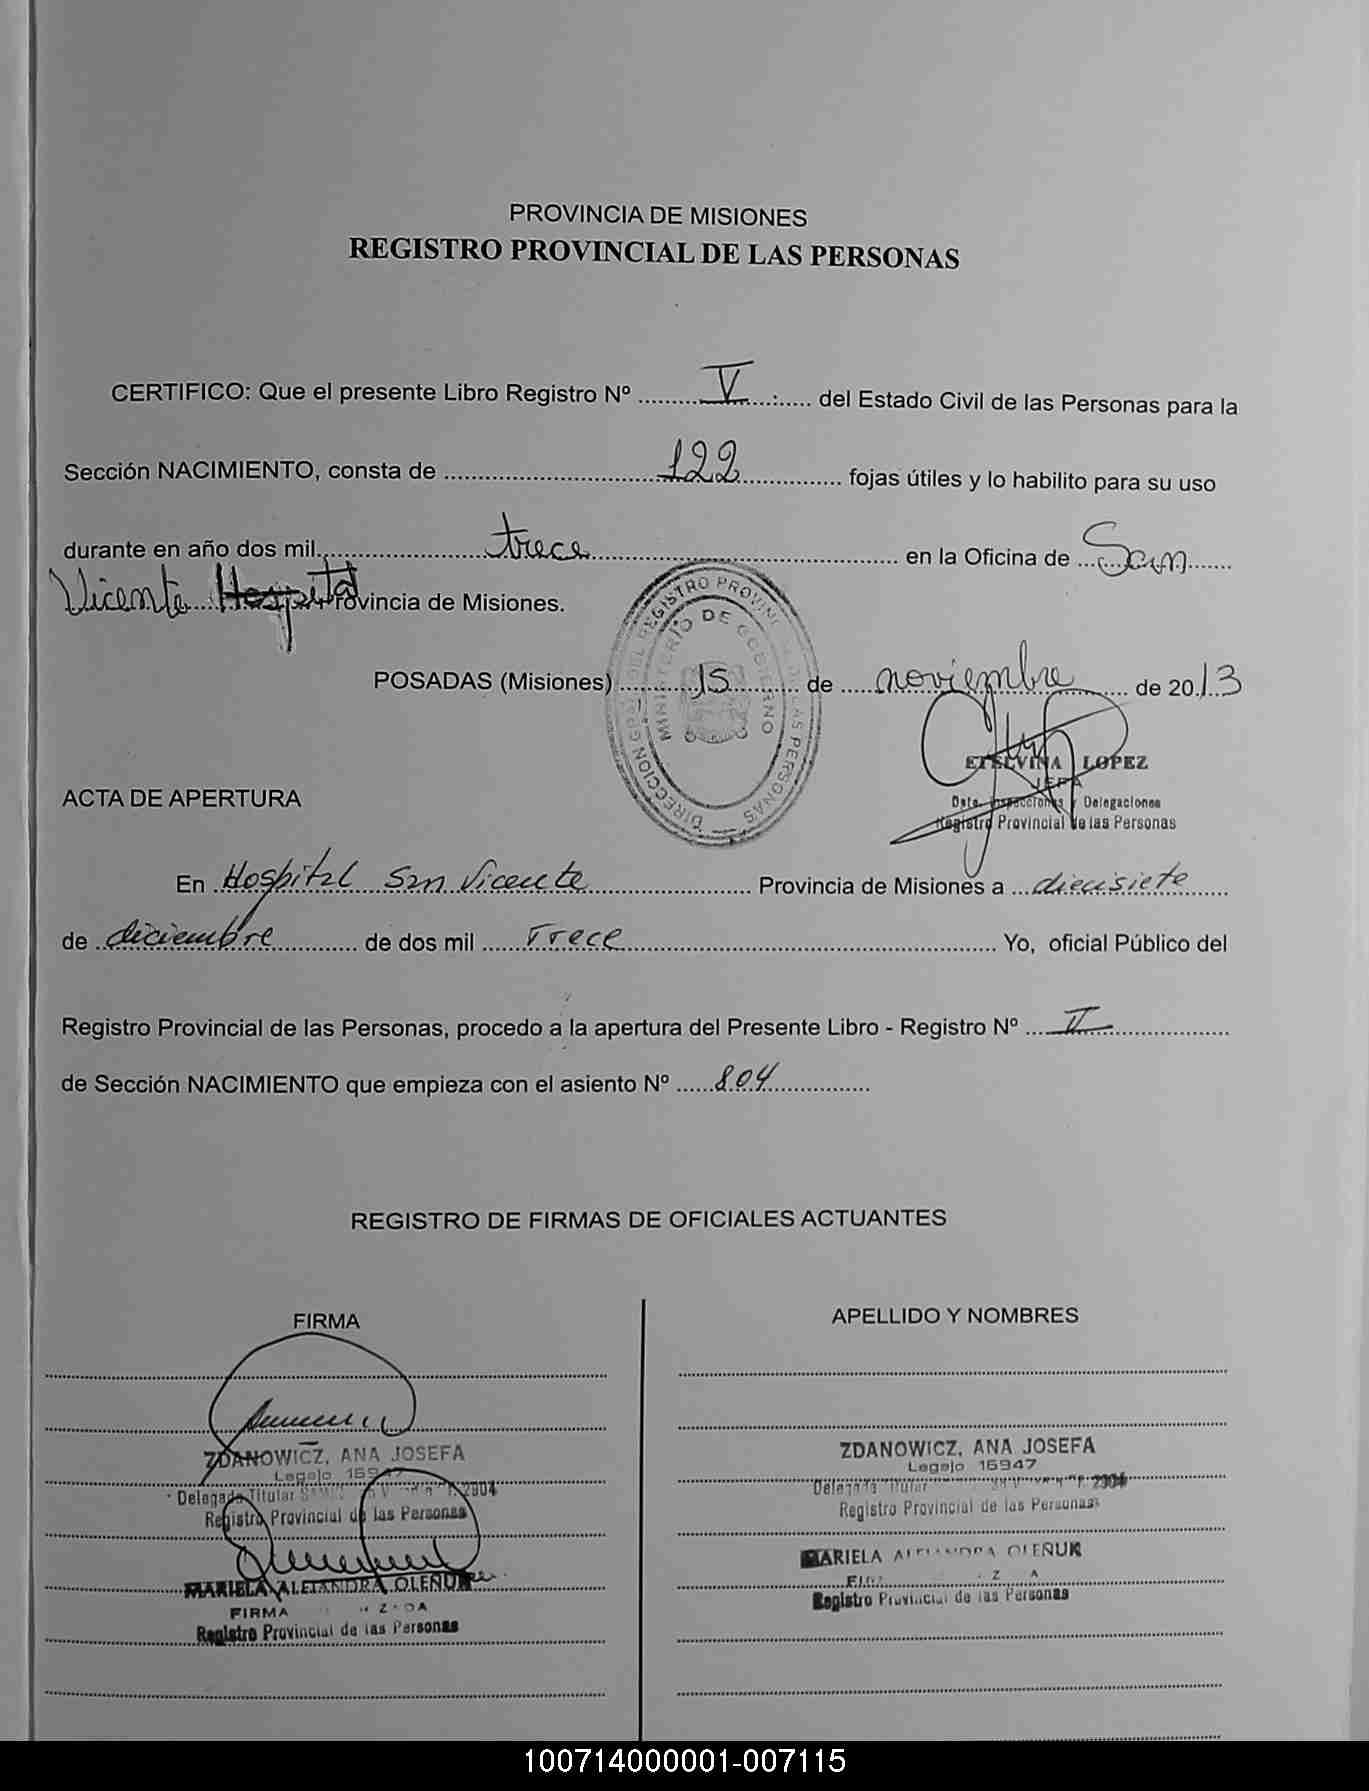 PROVINCIA DE MISIONES
REGISTRO PROVINCIAL DE LAS PERSONAS
CERTIFICO: Que el presente Libro Registro Nº V del Estado Civil de las Personas para la
Sección NACIMIENTO, consta de 122 fojas útiles y lo habilito para su uso
durante en año dos mil trece en la Oficina de San
Vicente Hospital Provincia de Misiones.
POSADAS (Misiones) 15 de noviembre de 2013
DIRECCION GRAL DEL REGISTRO PROVINCIAL DE LAS PERSONAS
MINISTERIO DE GOBIERNO
ETELVINA LOPEZ
JEFA
Dpto. Inspecciones y Delegaciones
Registro Provincial de las Personas
ACTA DE APERTURA
En Hospital San Vicente Provincia de Misiones a diecisiete
de diciembre de dos mil Trece Yo, oficial Público del
Registro Provincial de las Personas, procedo a la apertura del Presente Libro - Registro Nº V
de Sección NACIMIENTO que empieza con el asiento Nº 804
REGISTRO DE FIRMAS DE OFICIALES ACTUANTES
FIRMA
APELLIDO Y NOMBRES
ZDANOWICZ, ANA JOSEFA
Legajo 16947
Delegada Titular 2904
Registro Provincial de las Personas
MARIELA ALEJANDRA OLEÑUK
FIRMA
Registro Provincial de las Personas
ZDANOWICZ, ANA JOSEFA
Legajo 16947
Delegada Titular 2904
Registro Provincial de las Personas
MARIELA ALEJANDRA OLEÑUK
Registro Provincial de las Personas
100714000001-007115